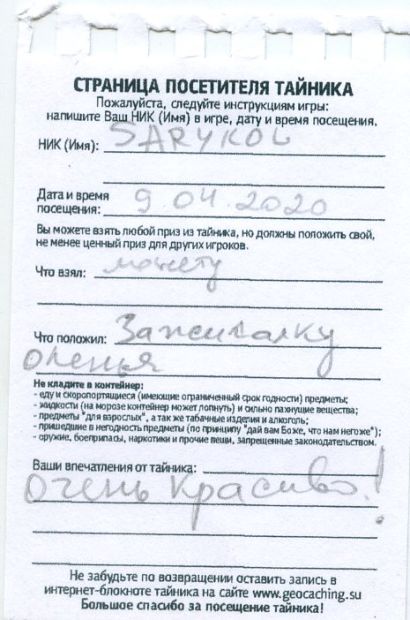 СТРАНИЦА ПОСЕТИТЕЛЯ ТАЙНИКА
Пожалуйста, следуйте инструкциям игры:
напишите Ваш НИК (Имя) в игре, дату и время посещения.
НИК (Имя): SARYKOL
Дата и время
посещения: 9.04.2020
Вы можете взять любой приз из тайника, но должны положить свой,
не менее ценный приз для других игроков.
Что взял: монету
Что положил: Зажигалку
оленья
Не кладите в контейнер:
- еду и скоропортящиеся (имеющие ограниченный срок годности) предметы;
- жидкости (на морозе контейнер может лопнуть) и сильно пахнущие вещества;
- предметы "для взрослых", а так же табачные изделия и алкоголь;
- пришедшие в негодность предметы (по принципу "дай вам Боже, что нам негоже");
- оружие, боеприпасы, наркотики и прочие вещи, запрещенные законодательством.
Ваши впечатления от тайника:
Очень красиво!
Не забудьте по возвращении оставить запись в
интернет-блокноте тайника на сайте www.geocaching.su
Большое спасибо за посещение тайника!